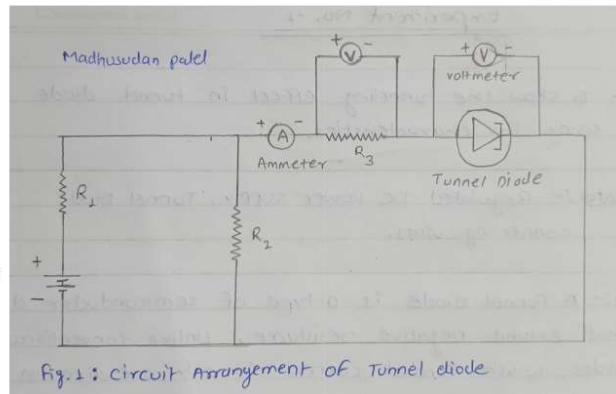 Madhusudan patel
+ V -
+ V -
voltmeter
+ A -
Ammeter
R3
Tunnel Diode
R1
R2
+
-
Fig. 1: Circuit Arrangement of Tunnel diode